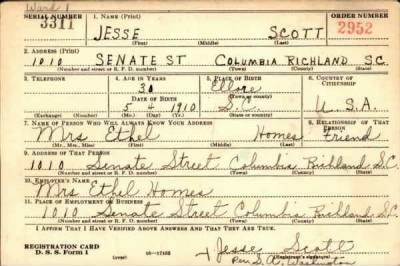 Ward 1
SERIAL NUMBER 1. NAME (Print) ORDER NUMBER
3311 JESSE SCOTT 2952
(First) (Middle) (Last)
2. ADDRESS (Print)
1010 SENATE ST COLUMBIA RICHLAND S.C.
(Number and street or R. F. D. number) (Town) (County) (State)
3. TELEPHONE 4. AGE IN YEARS 5. PLACE OF BIRTH 6. COUNTRY OF CITIZENSHIP
30 Ellore
DATE OF BIRTH
5 4 1910 S.C. U.S.A.
(Exchange) (Number) (Mo.) (Day) (Yr.) (State or country)
7. NAME OF PERSON WHO WILL ALWAYS KNOW YOUR ADDRESS 8. RELATIONSHIP OF THAT PERSON
Mrs Ethel Homes Friend
(Mr., Mrs., Miss) (First) (Middle) (Last)
9. ADDRESS OF THAT PERSON
1010 Senate Street Columbia Richland S.C.
(Number and street or R. F. D. number) (Town) (County) (State)
10. EMPLOYER'S NAME
Mrs Ethel Homes
11. PLACE OF EMPLOYMENT OR BUSINESS
1010 Senate Street Columbia Richland S.C.
(Number and street or R. F. D. number) (Town) (County) (State)
I AFFIRM THAT I HAVE VERIFIED ABOVE ANSWERS AND THAT THEY ARE TRUE.
REGISTRATION CARD
D. S. S. Form 1 (over) Jesse Scott
Per S.A. Washington